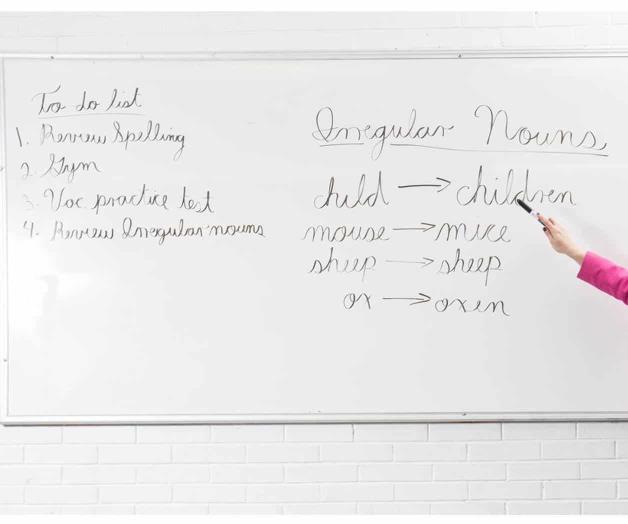 To do list
1. Review Spelling
2. Gym
3. Voc practice test
4. Review Irregular nouns
Irregular Nouns
child → children
mouse → mice
sheep → sheep
ox → oxen